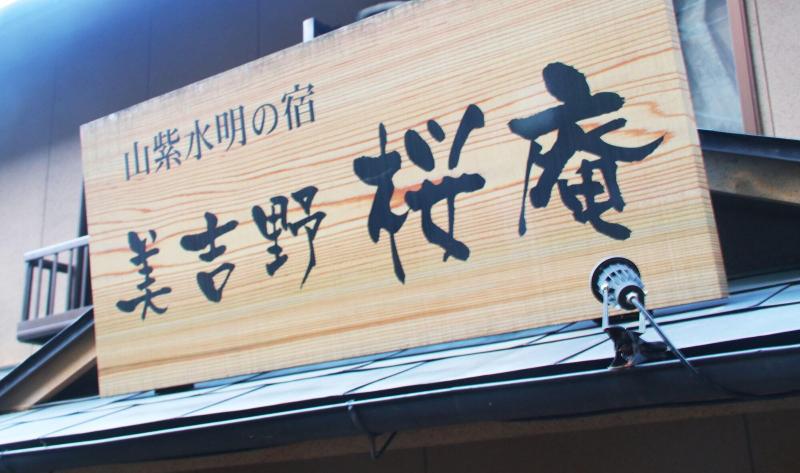 山紫水明の宿
美吉野 桜庵